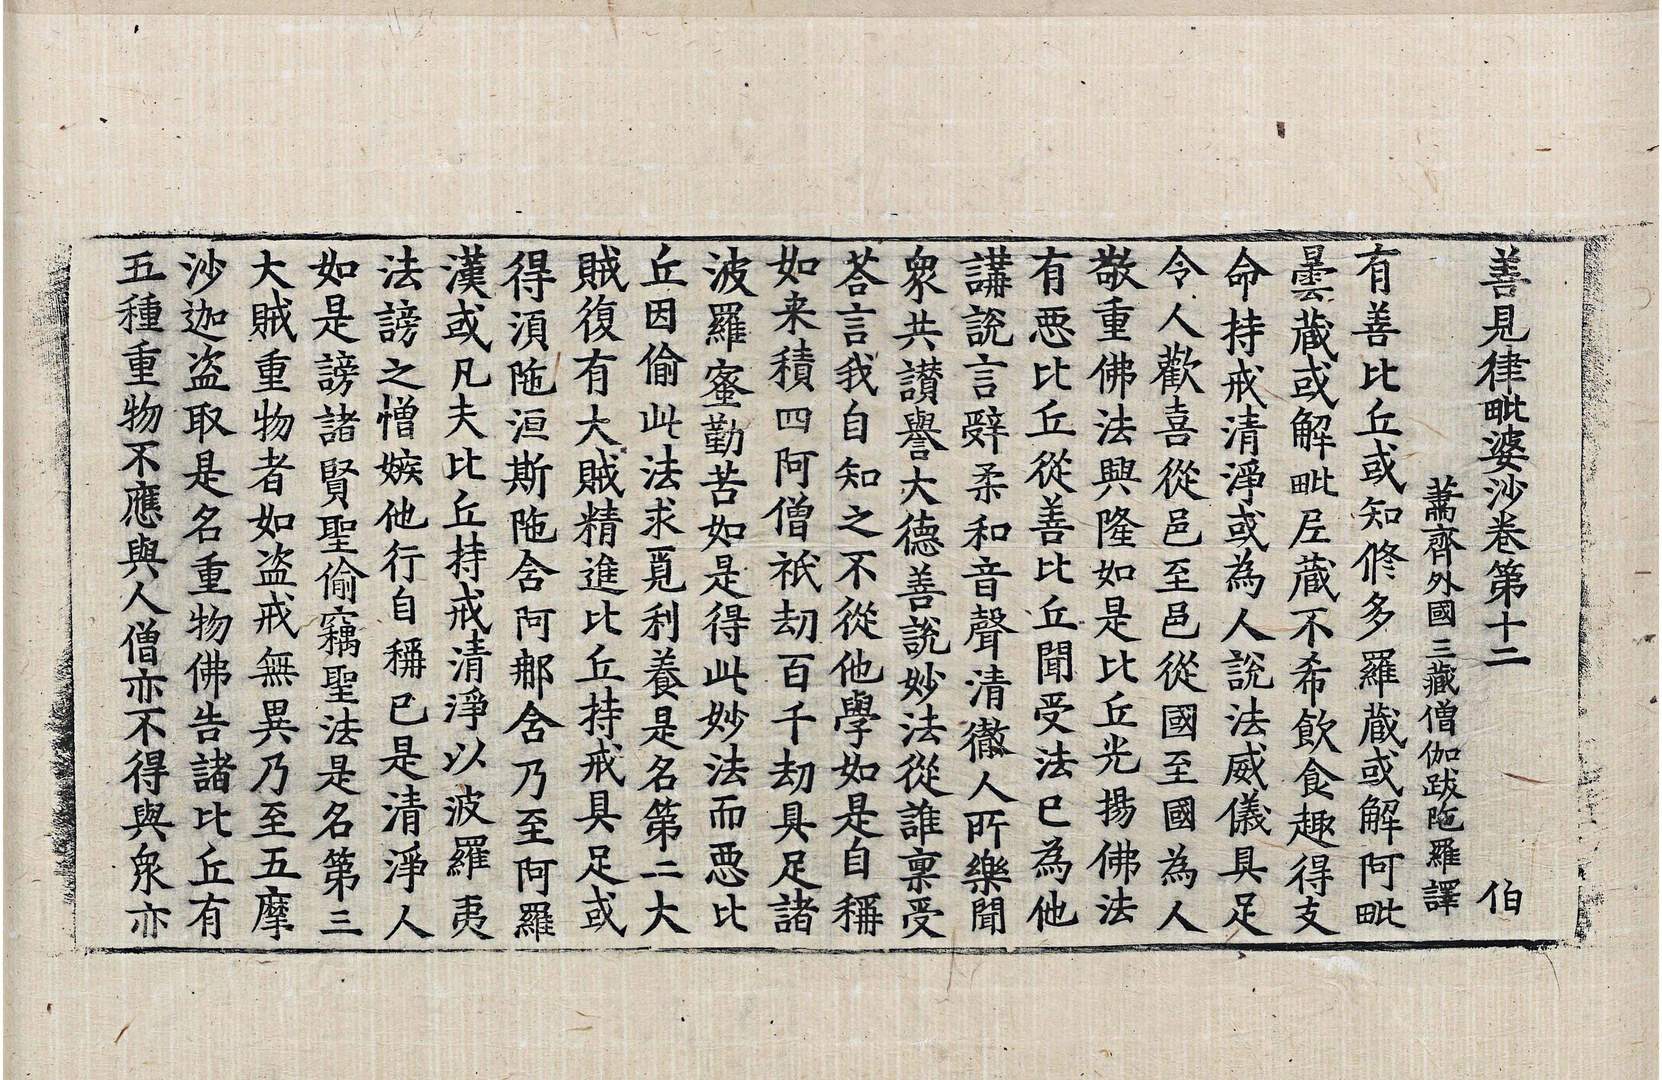 善見律毗婆沙卷第十二 伯
蕭齊外國三藏僧伽跋陁羅譯
有善比丘或知修多羅蔵或解阿毗
曇蔵或解毗尼蔵不希飲食趣得支
命持戒清淨或為人說法威儀具足
令人歡喜從邑至邑從國至國為人
敬重佛法興隆如是比丘光揚佛法
有惡比丘從善比丘聞受法已為他
講說言辭柔和音聲清徹人所樂聞
衆共讃譽大德善說妙法從誰稟受
荅言我自知之不從他學如是自稱
如来積四阿僧祇劫百千劫具足諸
波羅蜜勤苦如是得此妙法而惡比
丘因偷此法求覓利養是名第二大
賊復有大賊精進比丘持戒具足或
得湏陁洹斯陁含阿那含乃至阿羅
漢或凡夫比丘持戒清淨以波羅夷
法謗之憎嫉他行自稱已是清淨人
如是謗諸賢聖偷竊聖法是名第三
大賊重物者如盜戒無異乃至五摩
沙迦盜取是名重物佛告諸比丘有
五種重物不應與人僧亦不得與衆亦